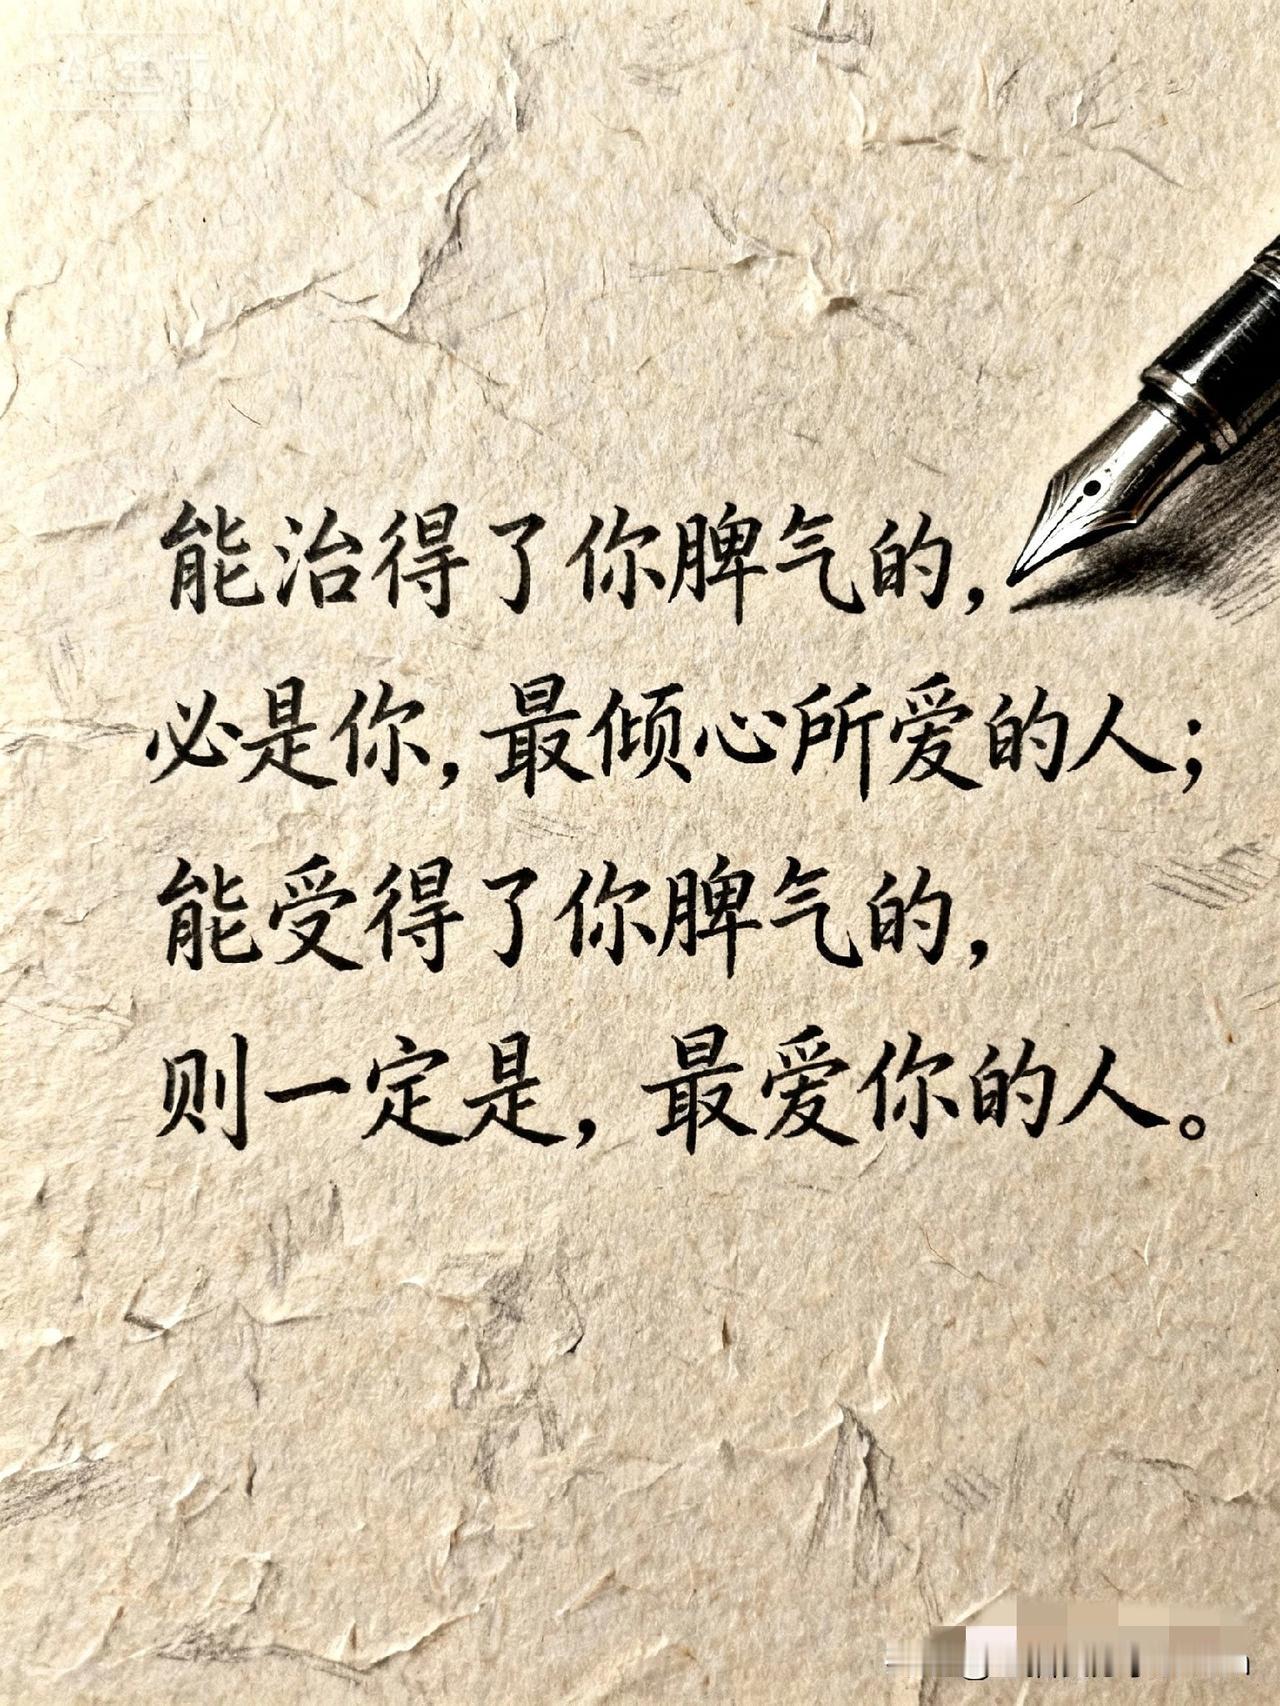 能治得了你脾气的，
必是你，最倾心所爱的人；
能受得了你脾气的，
则一定是，最爱你的人。